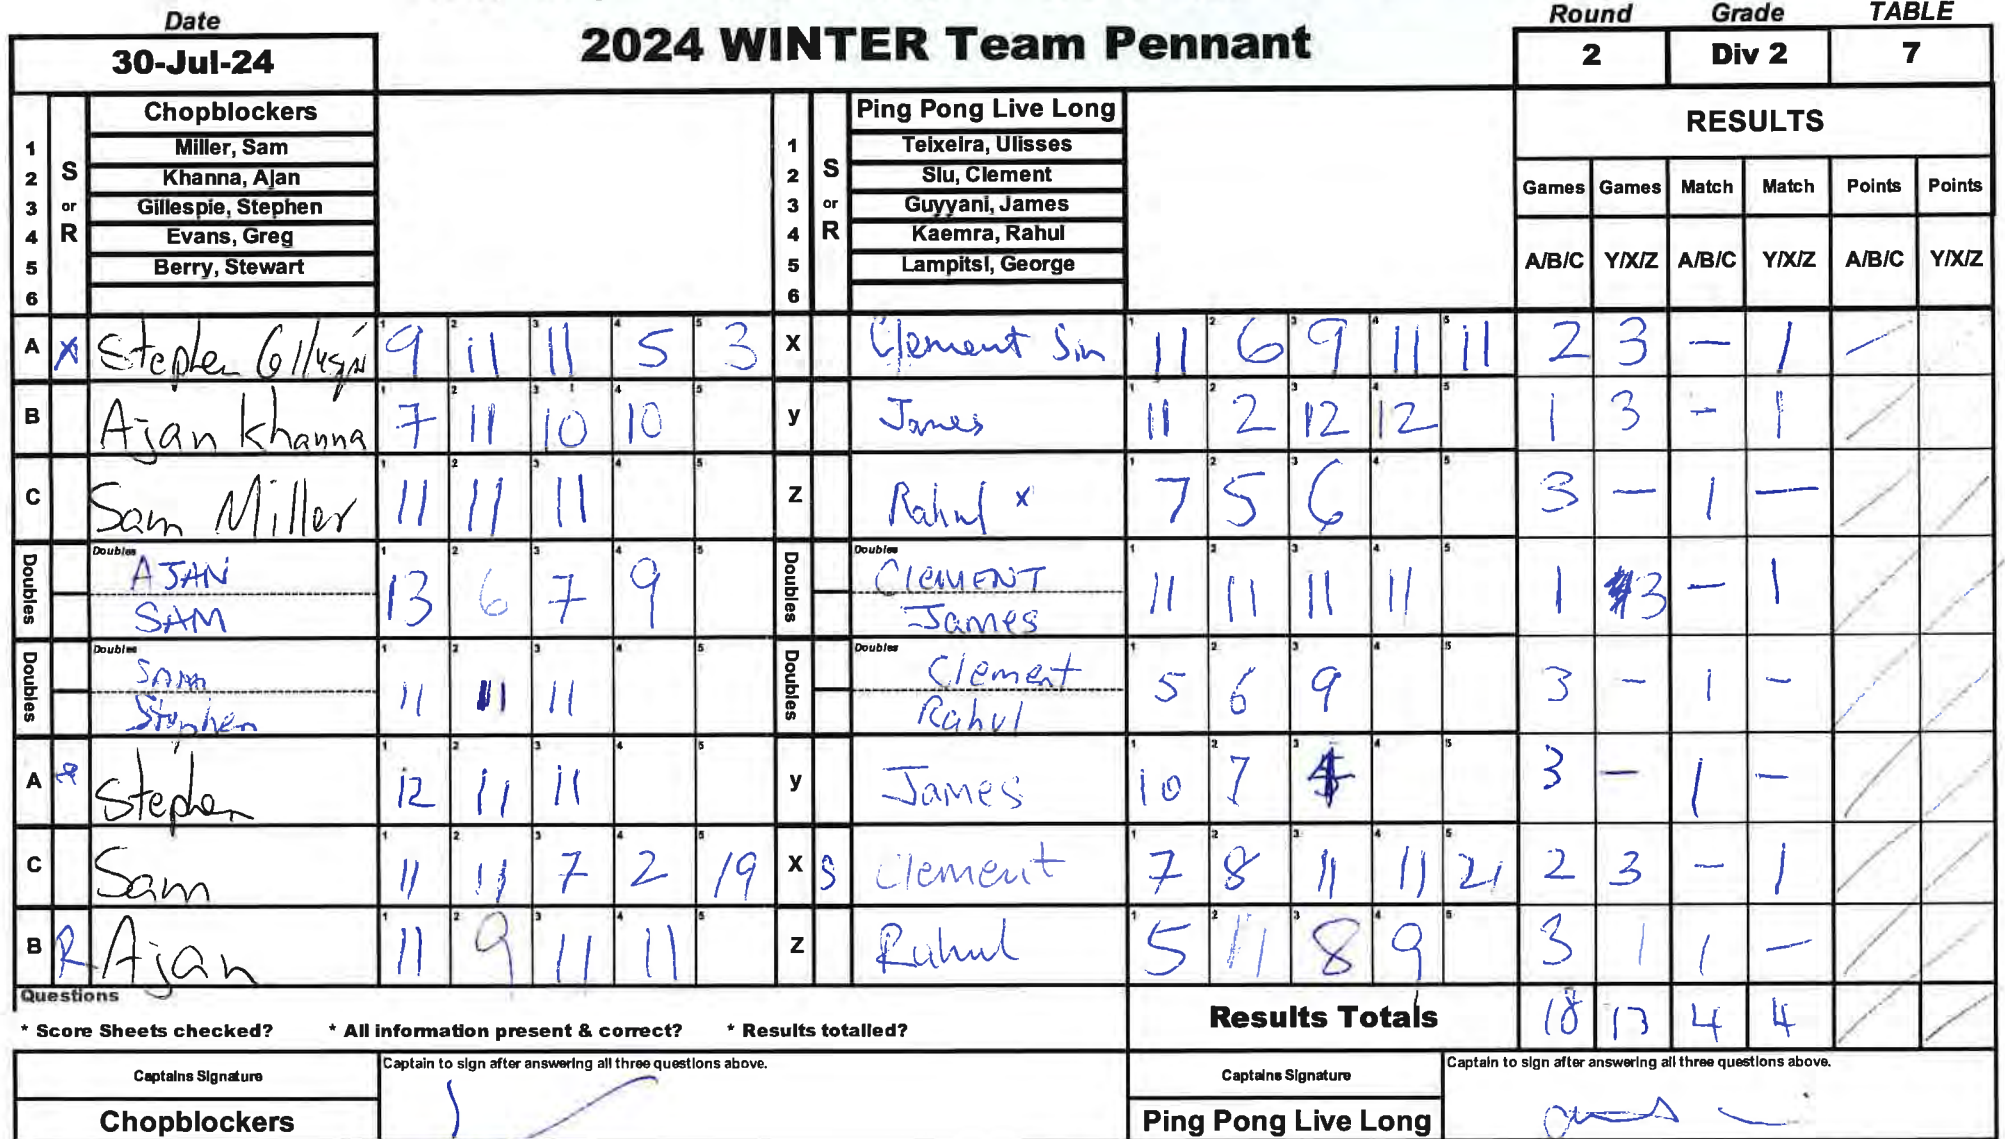 Date
30-Jul-24
2024 WINTER Team Pennant
Round Grade TABLE
2 Div 2 7
Chopblockers
1 Miller, Sam
2 Khanna, Ajan
3 Gillespie, Stephen
4 Evans, Greg
5 Berry, Stewart
6
S or R
Ping Pong Live Long
1 Teixeira, Ulisses
2 Siu, Clement
3 Guyyani, James
4 Kaemra, Rahul
5 Lampitsi, George
6
S or R
RESULTS
Games Games Match Match Points Points
A/B/C Y/X/Z A/B/C Y/X/Z A/B/C Y/X/Z
A X Stephen 9 11 11 5 3 X Clement 11 6 9 11 11 2 3 - 1
B Ajan Khanna 7 11 10 10 y James 11 2 12 12 1 3 - 1
C Sam Miller 11 11 11 Z Rahul x 7 5 6 3 - 1 -
Doubles Doubles AJAN 13 6 7 9 Doubles Doubles CLEMENT 11 11 11 11 1 3 - 1
SAM James
Doubles Doubles SAM 11 11 11 Doubles Doubles Clement 5 6 9 3 - 1 -
Stephen Rahul
A Stephen 12 11 11 y James 10 7 3 - 1 -
C Sam 11 11 7 2 19 X S Clement 7 8 11 11 21 2 3 - 1
B R Ajan 11 9 11 11 Z Rahul 5 11 8 9 3 1 1 -
Questions
* Score Sheets checked? * All information present & correct? * Results totalled?
Results Totals 18 13 4 4
Captains Signature
Captain to sign after answering all three questions above.
Captains Signature
Captain to sign after answering all three questions above.
Chopblockers
Ping Pong Live Long